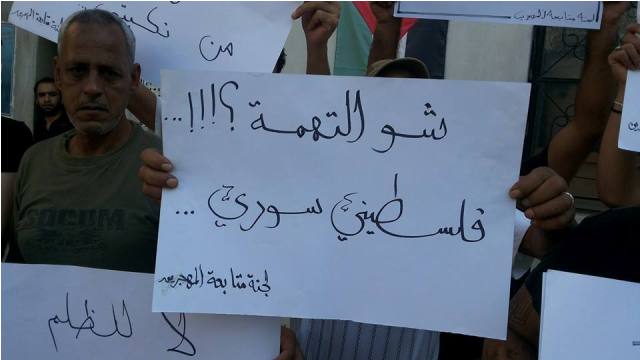 من
شو التهمة ؟!!!...
فلسطيني سوري ...
لجنة متابعة المهجرين
لا للظلم
SOCOM